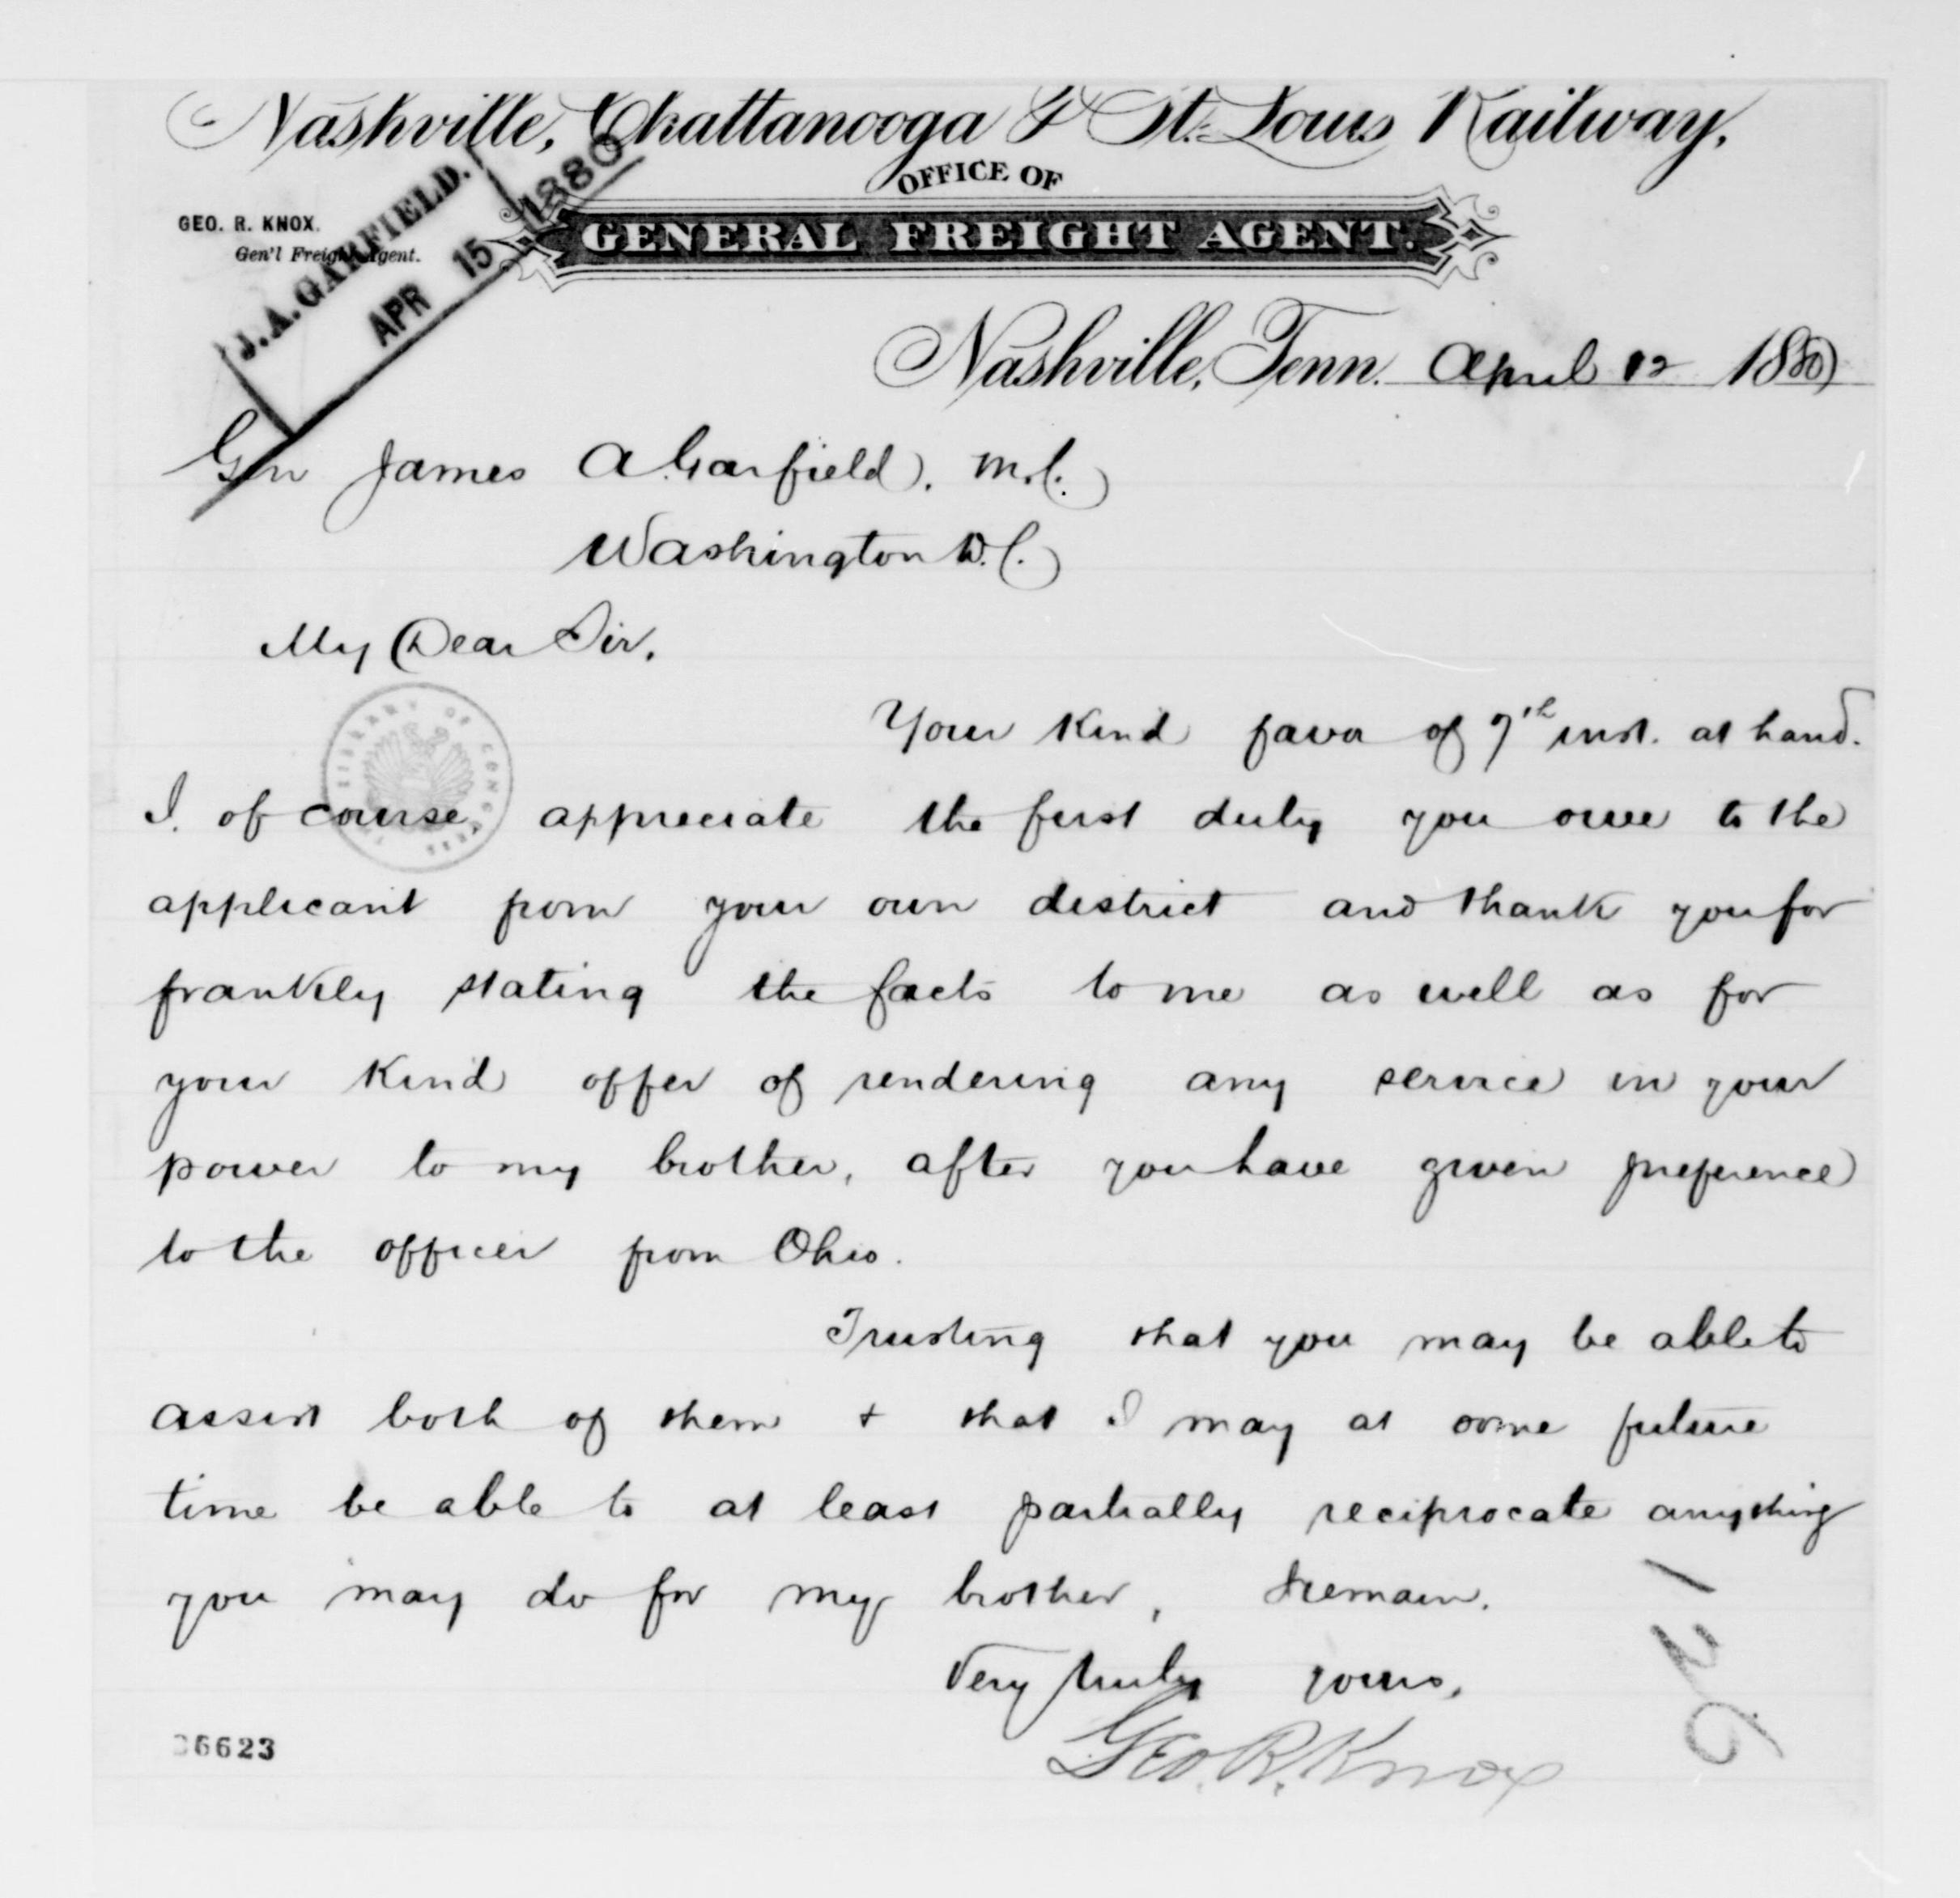 Nashville, Chattanooga & St. Louis Railway,
OFFICE OF
GENERAL FREIGHT AGENT.
GEO. R. KNOX.
Gen'l Freight Agent.
J. A. GARFIELD.
APR 15 1880
Nashville, Tenn. April 12 1880
Gen James A. Garfield, M.C.
Washington D.C.
My Dear Sir,
Your kind favor of 7th inst. at hand.
I of course appreciate the first duty you owe to the
applicant from your own district and thank you for
frankly stating the facts to me as well as for
your kind offer of rendering any service in your
power to my brother, after you have given preference
to the officer from Ohio.
Trusting that you may be able to
assist both of them + that I may at some future
time be able to at least partially reciprocate anything
you may do for my brother, I remain.
Very truly yours,
Geo. R. Knox
126
36623
LIBRARY OF CONGRESS